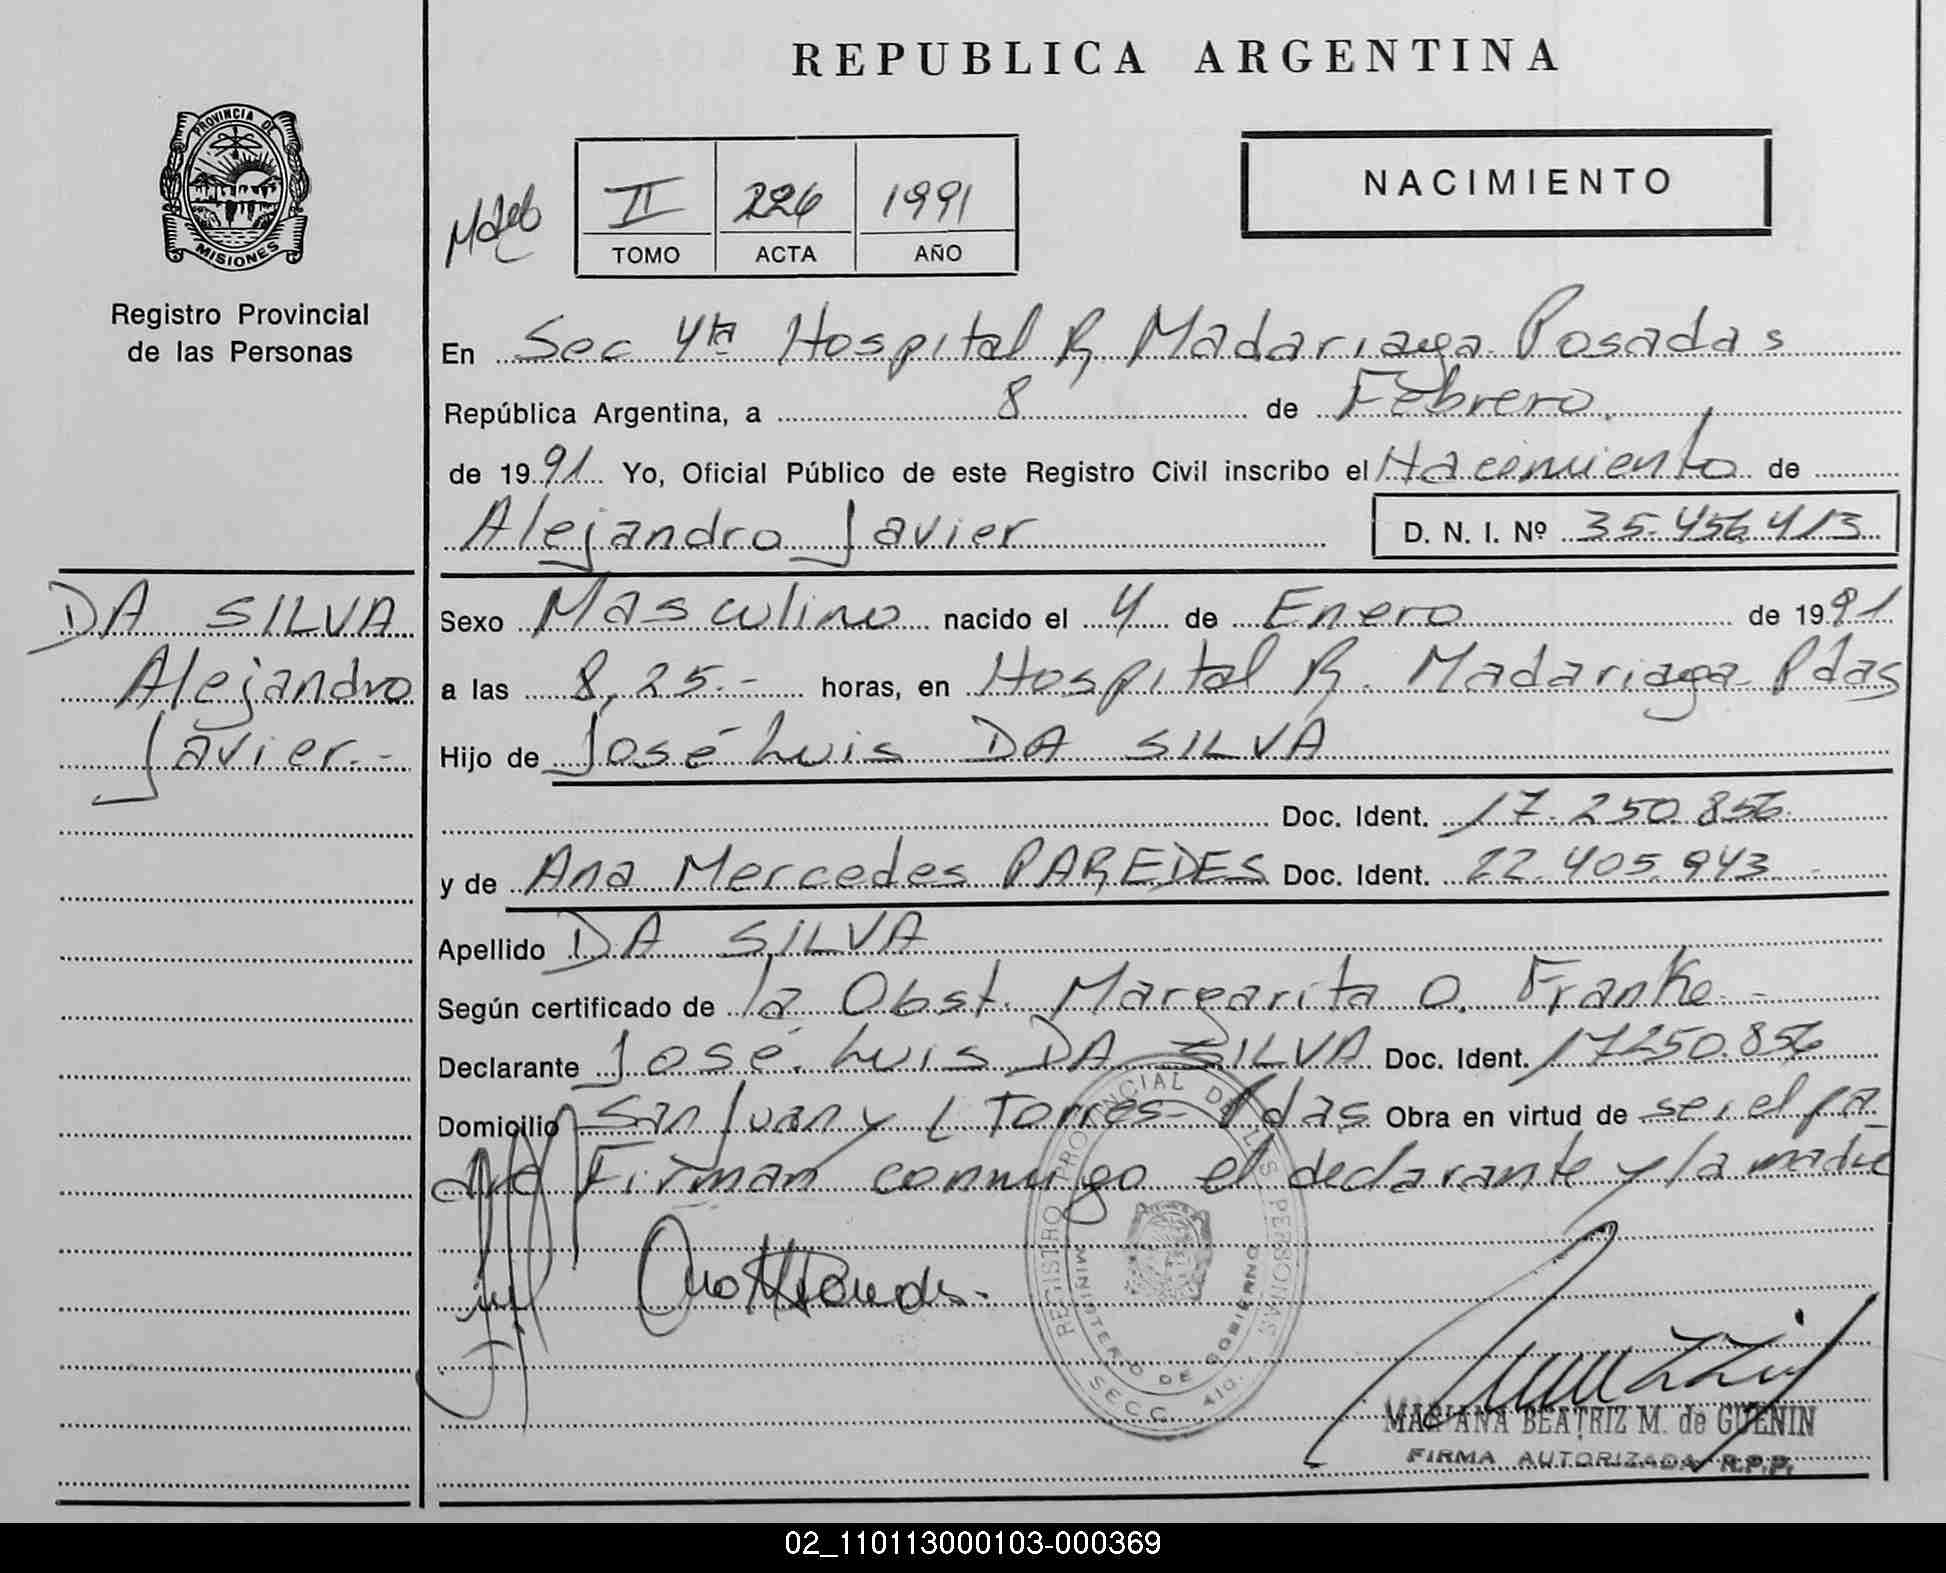 REPUBLICA ARGENTINA
PROVINCIA DE
MISIONES
Registro Provincial
de las Personas
II 226 1991
TOMO ACTA AÑO
NACIMIENTO
En Sec 4ta Hospital R. Madariaga Posadas
República Argentina, a 8 de Febrero.
de 1991 Yo, Oficial Público de este Registro Civil inscribo el Nacimiento de
Alejandro Javier D. N. I. Nº 35.456.413
DA SILVA
Alejandro
Javier.-
Sexo Masculino nacido el 4 de Enero de 1991
a las 8,25.- horas, en Hospital R. Madariaga Pdas
Hijo de José Luis DA SILVA
Doc. Ident. 17.250.856.
y de Ana Mercedes PAREDES Doc. Ident. 22.405.943.-
Apellido DA SILVA
Según certificado de la Obst. Margarita O. Franke.-
Declarante José Luis DA SILVA Doc. Ident. 17250.856
Domicilio San Juan y L Torres- Pdas Obra en virtud de ser el pa_
dre Firman conmigo el declarante y la madre
REGISTRO PROVINCIAL DE LAS PERSONAS
MINISTERIO DE GOBIERNO
SECC. 4ta.
MARIANA BEATRIZ M. de GUENIN
FIRMA AUTORIZADA R.P.P.
02_110113000103-000369